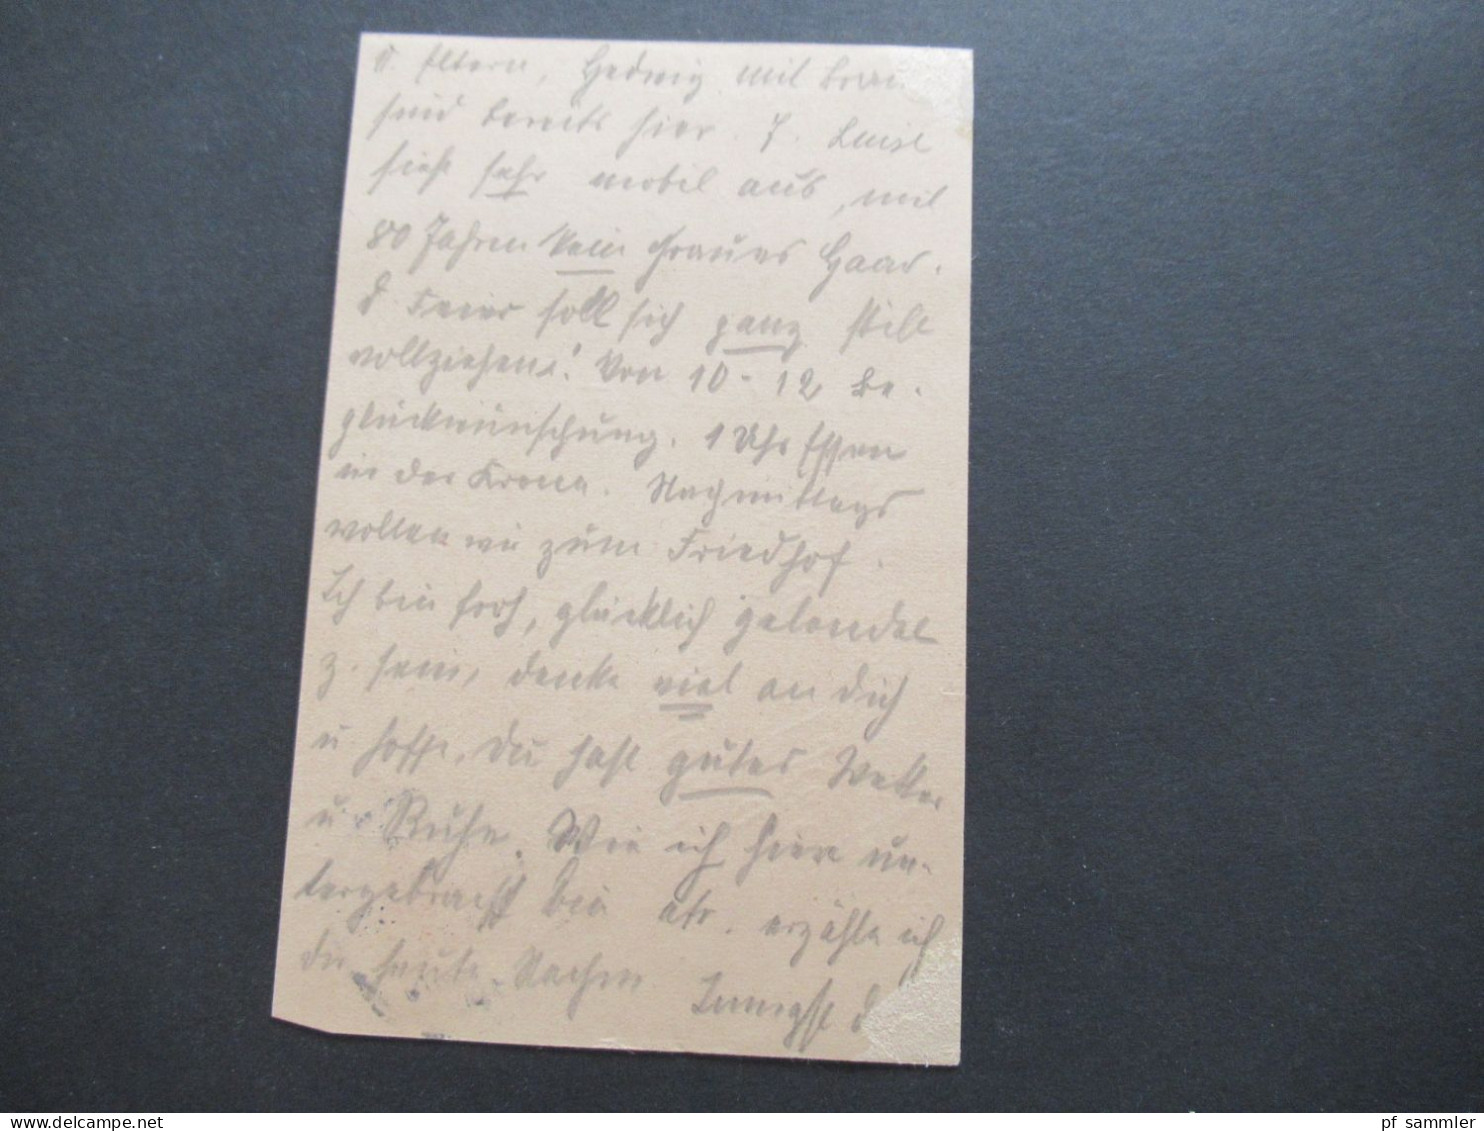 d. Eltern, Hedwig mit
sind bereits hier. T. Luise
sieht sehr mobil aus, mit
80 Jahren kein graues Haar.
d. Feier soll sich ganz still
vollziehen! Von 10-12 Be-
glückwünschung. 1 Uhr Essen
in der Krone. Nachmittags
wollen wir zum Friedhof.
Ich bin froh, glücklich gelandet
z. sein, denke viel an dich
u. hoffe, du hast gutes Wetter
u. Ruhe. Wie ich hier un-
tergebracht bin etc. erzähle ich
dir heute Nachm Innigst d
pf sammler
www.delcampe.net